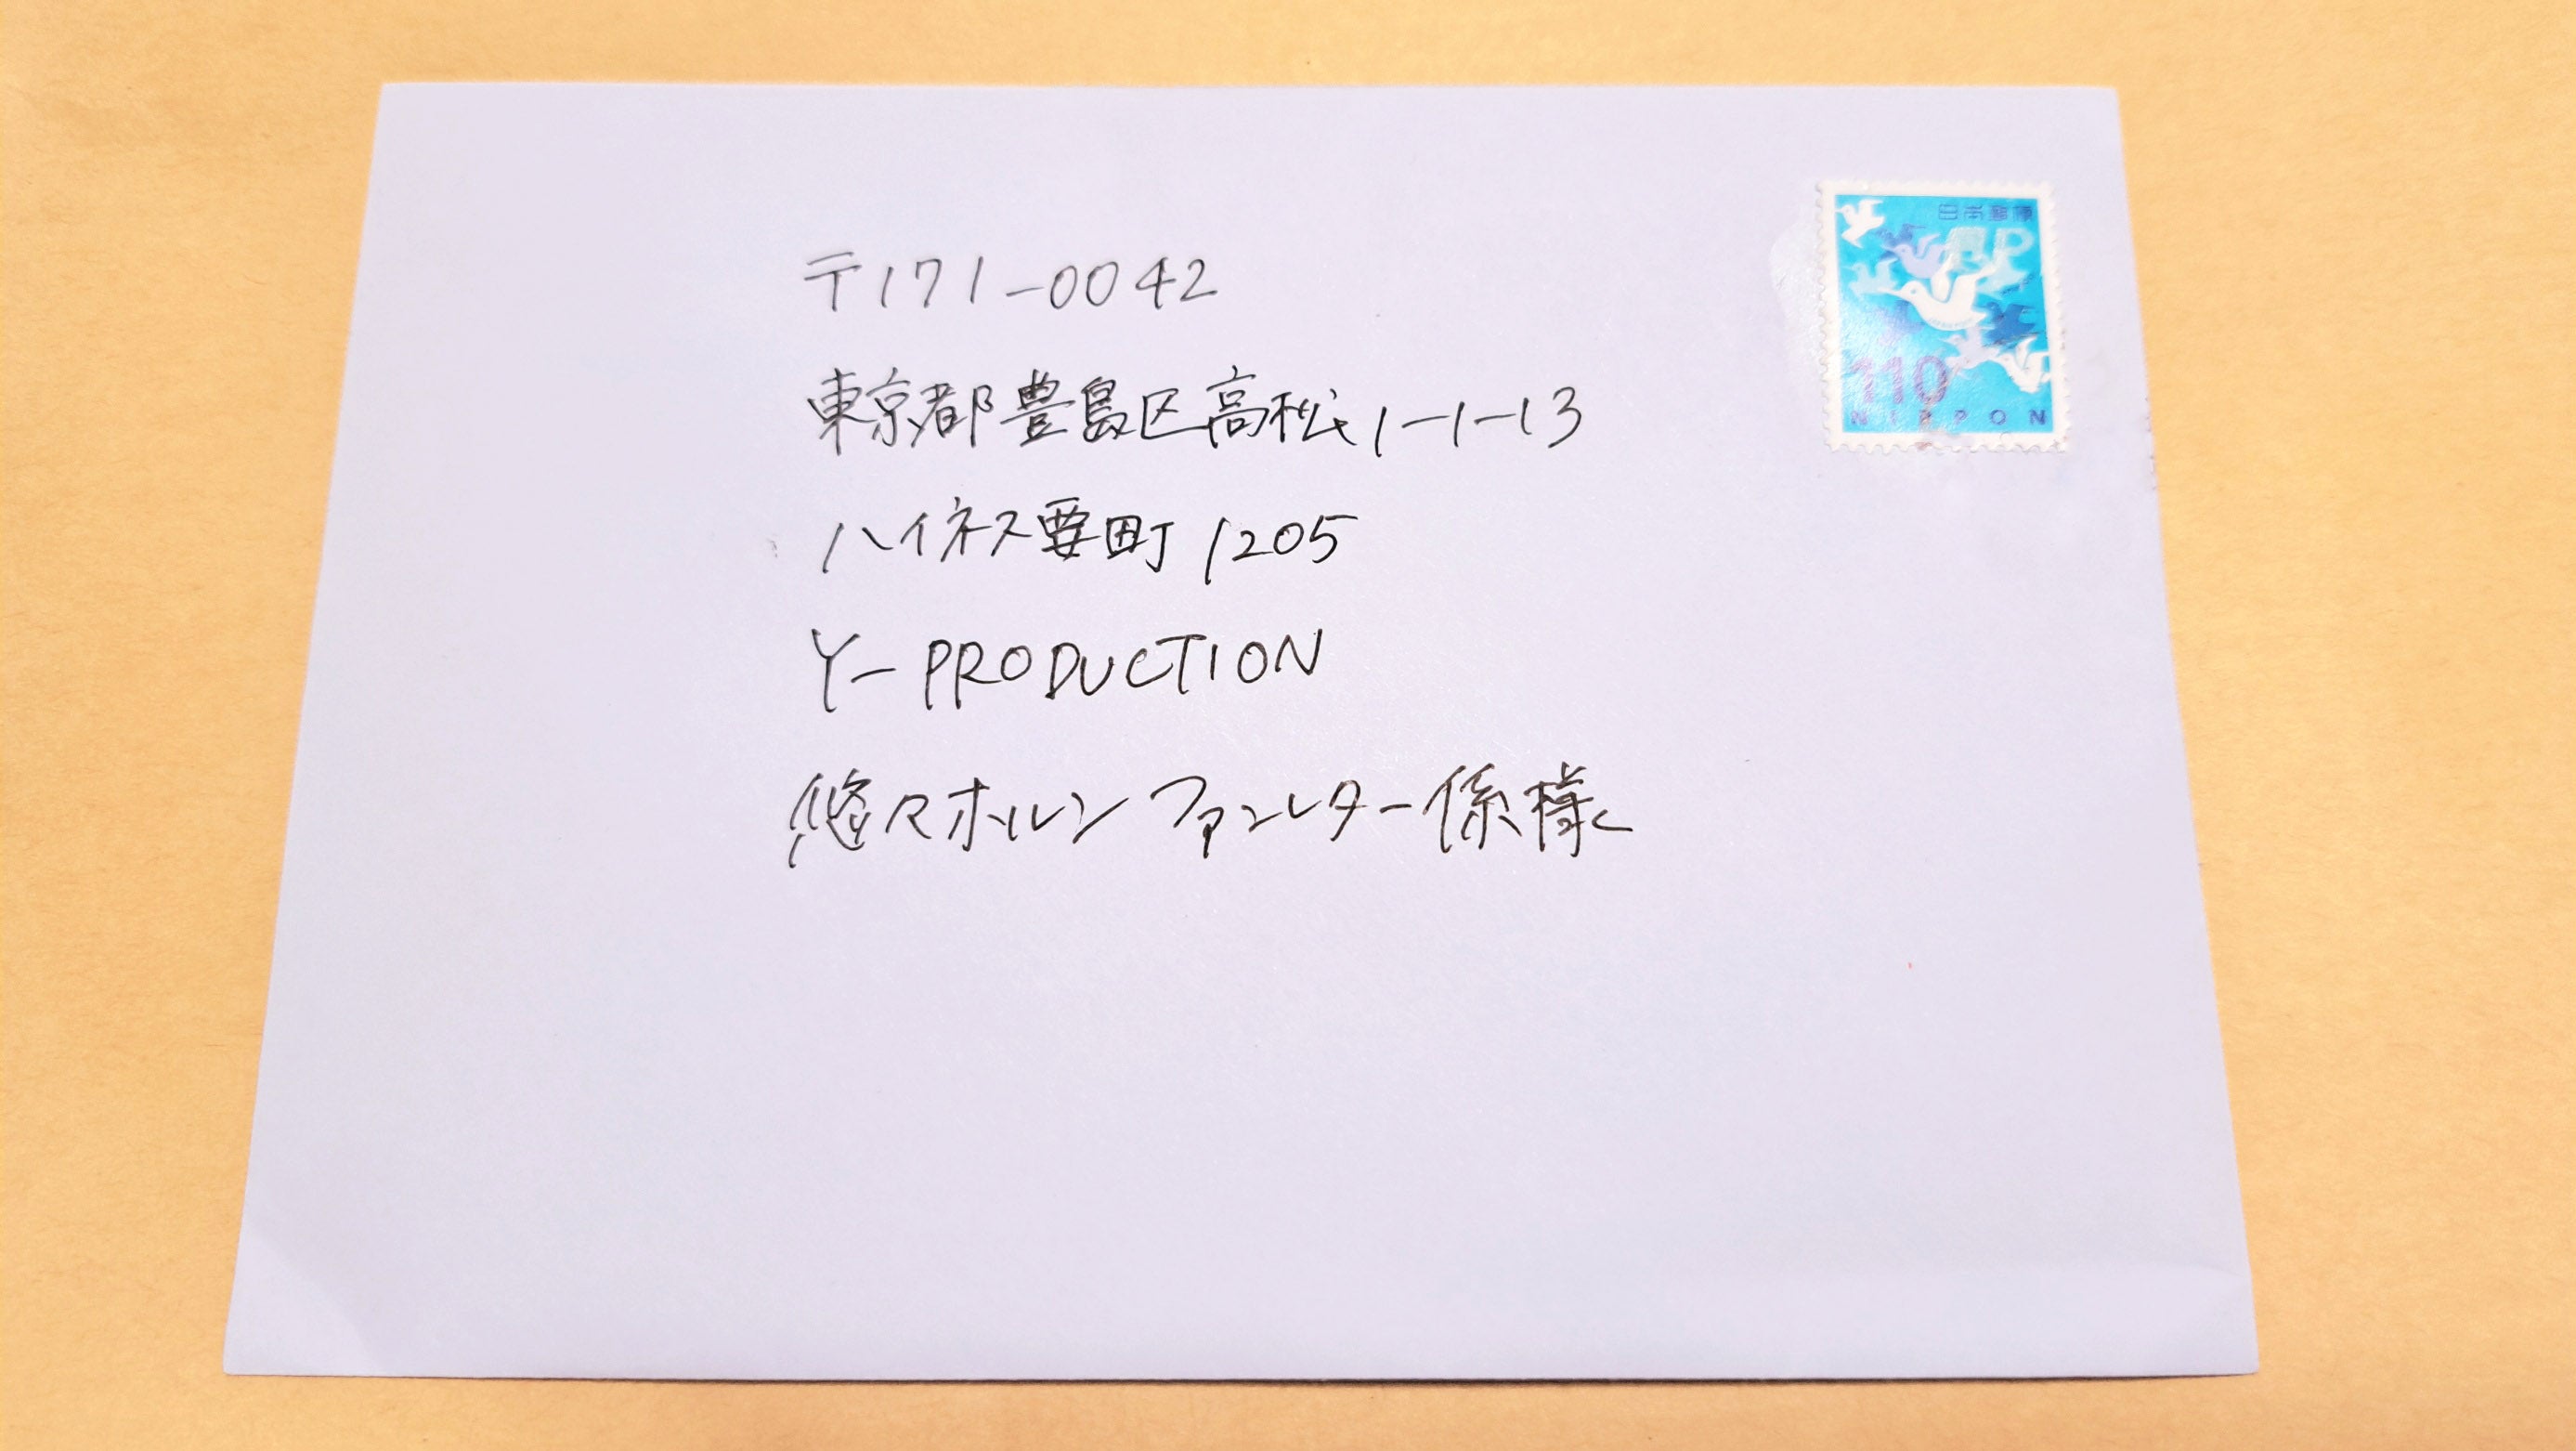 〒171-0042
東京都豊島区高松1-1-13
ハイネス要町 1205
Y-PRODUCTION
悠々ホルン ファンレター係様
日本郵便
110
NIPPON